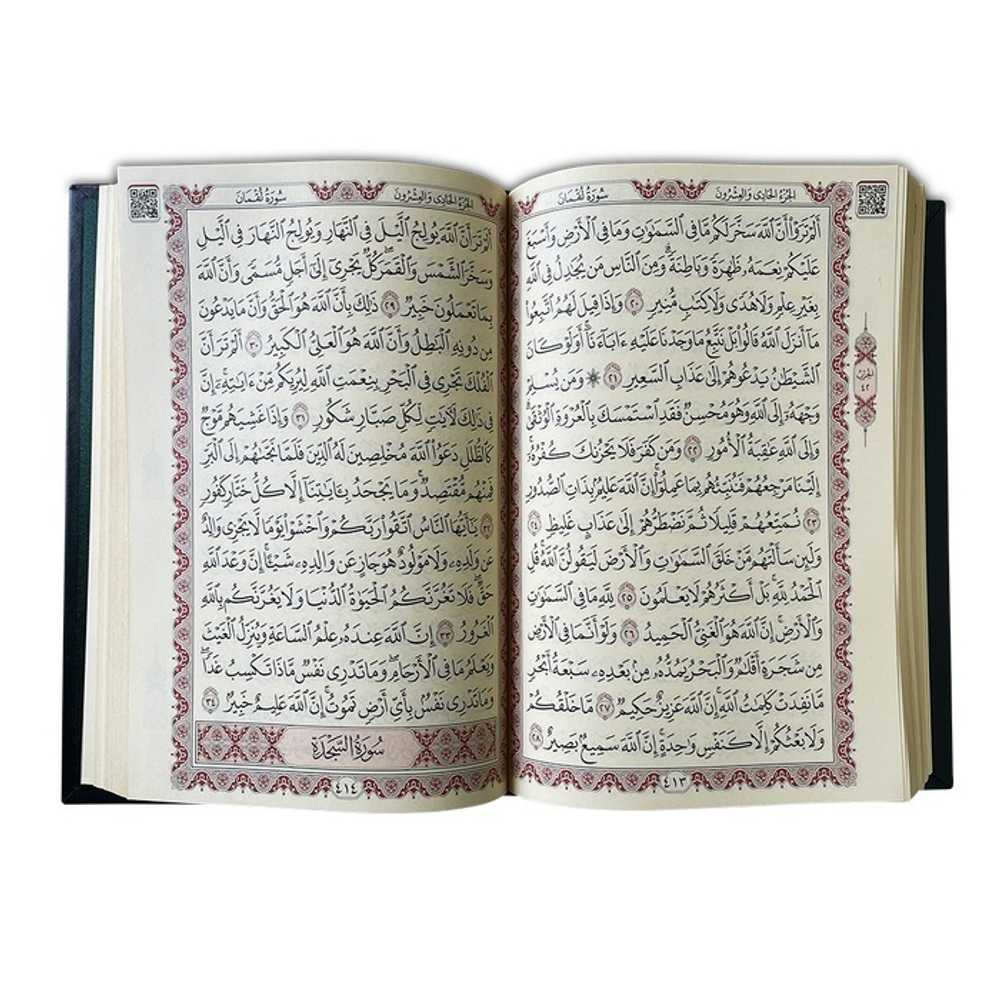 الجزء الحادي والعشرون سورة لقمان
أَلَمْ تَرَوْا۟ أَنَّ ٱللَّهَ سَخَّرَ لَكُم مَّا فِى ٱلسَّمَٰوَٰتِ وَمَا فِى ٱلْأَرْضِ وَأَسْبَغَ
عَلَيْكُمْ نِعَمَهُۥ ظَٰهِرَةً وَبَاطِنَةً ۗ وَمِنَ ٱلنَّاسِ مَن يُجَٰدِلُ فِى ٱللَّهِ
بِغَيْرِ عِلْمٍ وَلَا هُدًى وَلَا كِتَٰبٍ مُّنِيرٍ ٢٠ وَإِذَا قِيلَ لَهُمُ ٱتَّبِعُوا۟
مَآ أَنزَلَ ٱللَّهُ قَالُوا۟ بَلْ نَتَّبِعُ مَا وَجَدْنَا عَلَيْهِ ءَابَآءَنَآ ۚ أَوَلَوْ كَانَ
ٱلشَّيْطَٰنُ يَدْعُوهُمْ إِلَىٰ عَذَابِ ٱلسَّعِيرِ ٢١ ۞ وَمَن يُسْلِمْ
وَجْهَهُۥٓ إِلَى ٱللَّهِ وَهُوَ مُحْسِنٌ فَقَدِ ٱسْتَمْسَكَ بِٱلْعُرْوَةِ ٱلْوُثْقَىٰ ۗ
وَإِلَى ٱللَّهِ عَٰقِبَةُ ٱلْأُمُورِ ٢٢ وَمَن كَفَرَ فَلَا يَحْزُنكَ كُفْرُهُۥٓ ۚ
إِلَيْنَا مَرْجِعُهُمْ فَنُنَبِّئُهُم بِمَا عَمِلُوٓا۟ ۚ إِنَّ ٱللَّهَ عَلِيمٌۢ بِذَاتِ ٱلصُّدُورِ
٢٣ نُمَتِّعُهُمْ قَلِيلًا ثُمَّ نَضْطَرُّهُمْ إِلَىٰ عَذَابٍ غَلِيظٍ ٢٤
وَلَئِن سَأَلْتَهُم مَّنْ خَلَقَ ٱلسَّمَٰوَٰتِ وَٱلْأَرْضَ لَيَقُولُنَّ ٱللَّهُ ۚ قُلِ
ٱلْحَمْدُ لِلَّهِ ۚ بَلْ أَكْثَرُهُمْ لَا يَعْلَمُونَ ٢٥ لِلَّهِ مَا فِى ٱلسَّمَٰوَٰتِ
وَٱلْأَرْضِ ۚ إِنَّ ٱللَّهَ هُوَ ٱلْغَنِىُّ ٱلْحَمِيدُ ٢٦ وَلَوْ أَنَّمَا فِى ٱلْأَرْضِ
مِن شَجَرَةٍ أَقْلَٰمٌ وَٱلْبَحْرُ يَمُدُّهُۥ مِنۢ بَعْدِهِۦ سَبْعَةُ أَبْحُرٍ
مَّا نَفِدَتْ كَلِمَٰتُ ٱللَّهِ ۗ إِنَّ ٱللَّهَ عَزِيزٌ حَكِيمٌ ٢٧ مَّا خَلْقُكُمْ
وَلَا بَعْثُكُمْ إِلَّا كَنَفْسٍ وَٰحِدَةٍ ۗ إِنَّ ٱللَّهَ سَمِيعٌۢ بَصِيرٌ ٢٨
٤١٣
الحزب
٤٢
الجزء الحادي والعشرون سورة لقمان
أَلَمْ تَرَ أَنَّ ٱللَّهَ يُولِجُ ٱلَّيْلَ فِى ٱلنَّهَارِ وَيُولِجُ ٱلنَّهَارَ فِى ٱلَّيْلِ
وَسَخَّرَ ٱلشَّمْسَ وَٱلْقَمَرَ كُلٌّ يَجْرِىٓ إِلَىٰٓ أَجَلٍ مُّسَمًّى وَأَنَّ ٱللَّهَ
بِمَا تَعْمَلُونَ خَبِيرٌ ٢٩ ذَٰلِكَ بِأَنَّ ٱللَّهَ هُوَ ٱلْحَقُّ وَأَنَّ مَا يَدْعُونَ
مِن دُونِهِ ٱلْبَٰطِلُ وَأَنَّ ٱللَّهَ هُوَ ٱلْعَلِىُّ ٱلْكَبِيرُ ٣٠ أَلَمْ تَرَ أَنَّ
ٱلْفُلْكَ تَجْرِى فِى ٱلْبَحْرِ بِنِعْمَتِ ٱللَّهِ لِيُرِيَكُم مِّنْ ءَايَٰتِهِۦٓ ۚ إِنَّ
فِى ذَٰلِكَ لَءَايَٰتٍ لِّكُلِّ صَبَّارٍ شَكُورٍ ٣١ وَإِذَا غَشِيَهُم مَّوْجٌ
كَٱلظُّلَلِ دَعَوُا۟ ٱللَّهَ مُخْلِصِينَ لَهُ ٱلدِّينَ فَلَمَّا نَجَّىٰهُمْ إِلَى ٱلْبَرِّ
فَمِنْهُم مُّقْتَصِدٌ ۚ وَمَا يَجْحَدُ بِـَٔايَٰتِنَآ إِلَّا كُلُّ خَتَّارٍ كَفُورٍ
٣٢ يَٰٓأَيُّهَا ٱلنَّاسُ ٱتَّقُوا۟ رَبَّكُمْ وَٱخْشَوْا۟ يَوْمًا لَّا يَجْزِى وَالِدٌ
عَن وَلَدِهِۦ وَلَا مَوْلُودٌ هُوَ جَازٍ عَن وَالِدِهِۦ شَيْـًٔا ۚ إِنَّ وَعْدَ ٱللَّهِ
حَقٌّ ۖ فَلَا تَغُرَّنَّكُمُ ٱلْحَيَوٰةُ ٱلدُّنْيَا وَلَا يَغُرَّنَّكُم بِٱللَّهِ
ٱلْغَرُورُ ٣٣ إِنَّ ٱللَّهَ عِندَهُۥ عِلْمُ ٱلسَّاعَةِ وَيُنَزِّلُ ٱلْغَيْثَ
وَيَعْلَمُ مَا فِى ٱلْأَرْحَامِ ۖ وَمَا تَدْرِى نَفْسٌ مَّاذَا تَكْسِبُ غَدًا ۖ
وَمَا تَدْرِى نَفْسٌۢ بِأَىِّ أَرْضٍ تَمُوتُ ۚ إِنَّ ٱللَّهَ عَلِيمٌ خَبِيرٌۢ ٣٤
سورة السجدة
٤١٤